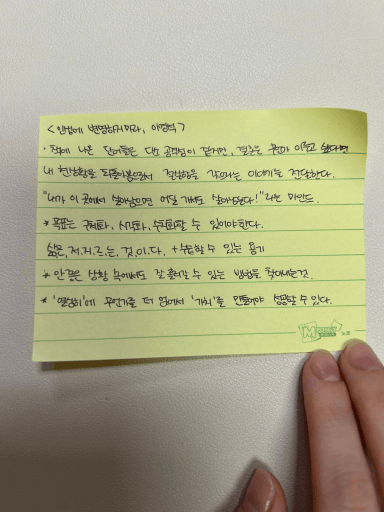 <인생에 변명하지마라, 이영석>
· 책에 나온 단어들은 다소 공격적이 같지만, 결론은 무언가 이루고 싶다면
내 현상황을 되돌아봄으로써 절실함을 가지라는 이야기를 전달한다.
"내가 이 곳에서 살아남으면 어딜 가서도 살아남는다!"라는 마인드.
* 목표는 구체화, 시각화, 수치화할 수 있어야한다.
삶은, 저.지.르.는. 것.이.다. + 수습할 수 있는 용기
* 안 좋은 상황 속에서도 잘 흘러갈 수 있는 방법을 찾아내는것.
* '열심히'에 무언가를 더 얹어서 '가치'를 만들어야 성공할 수 있다.